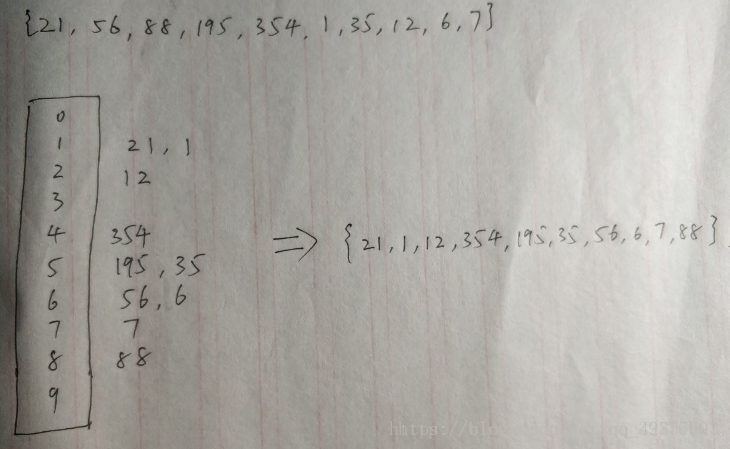 {21, 56, 88, 195, 354, 1, 35, 12, 6, 7}
0
1 21, 1
2 12
3
4 354
5 195, 35
6 56, 6
7 7
8 88
9
⇒ {21, 1, 12, 354, 195, 35, 56, 6, 7, 88}